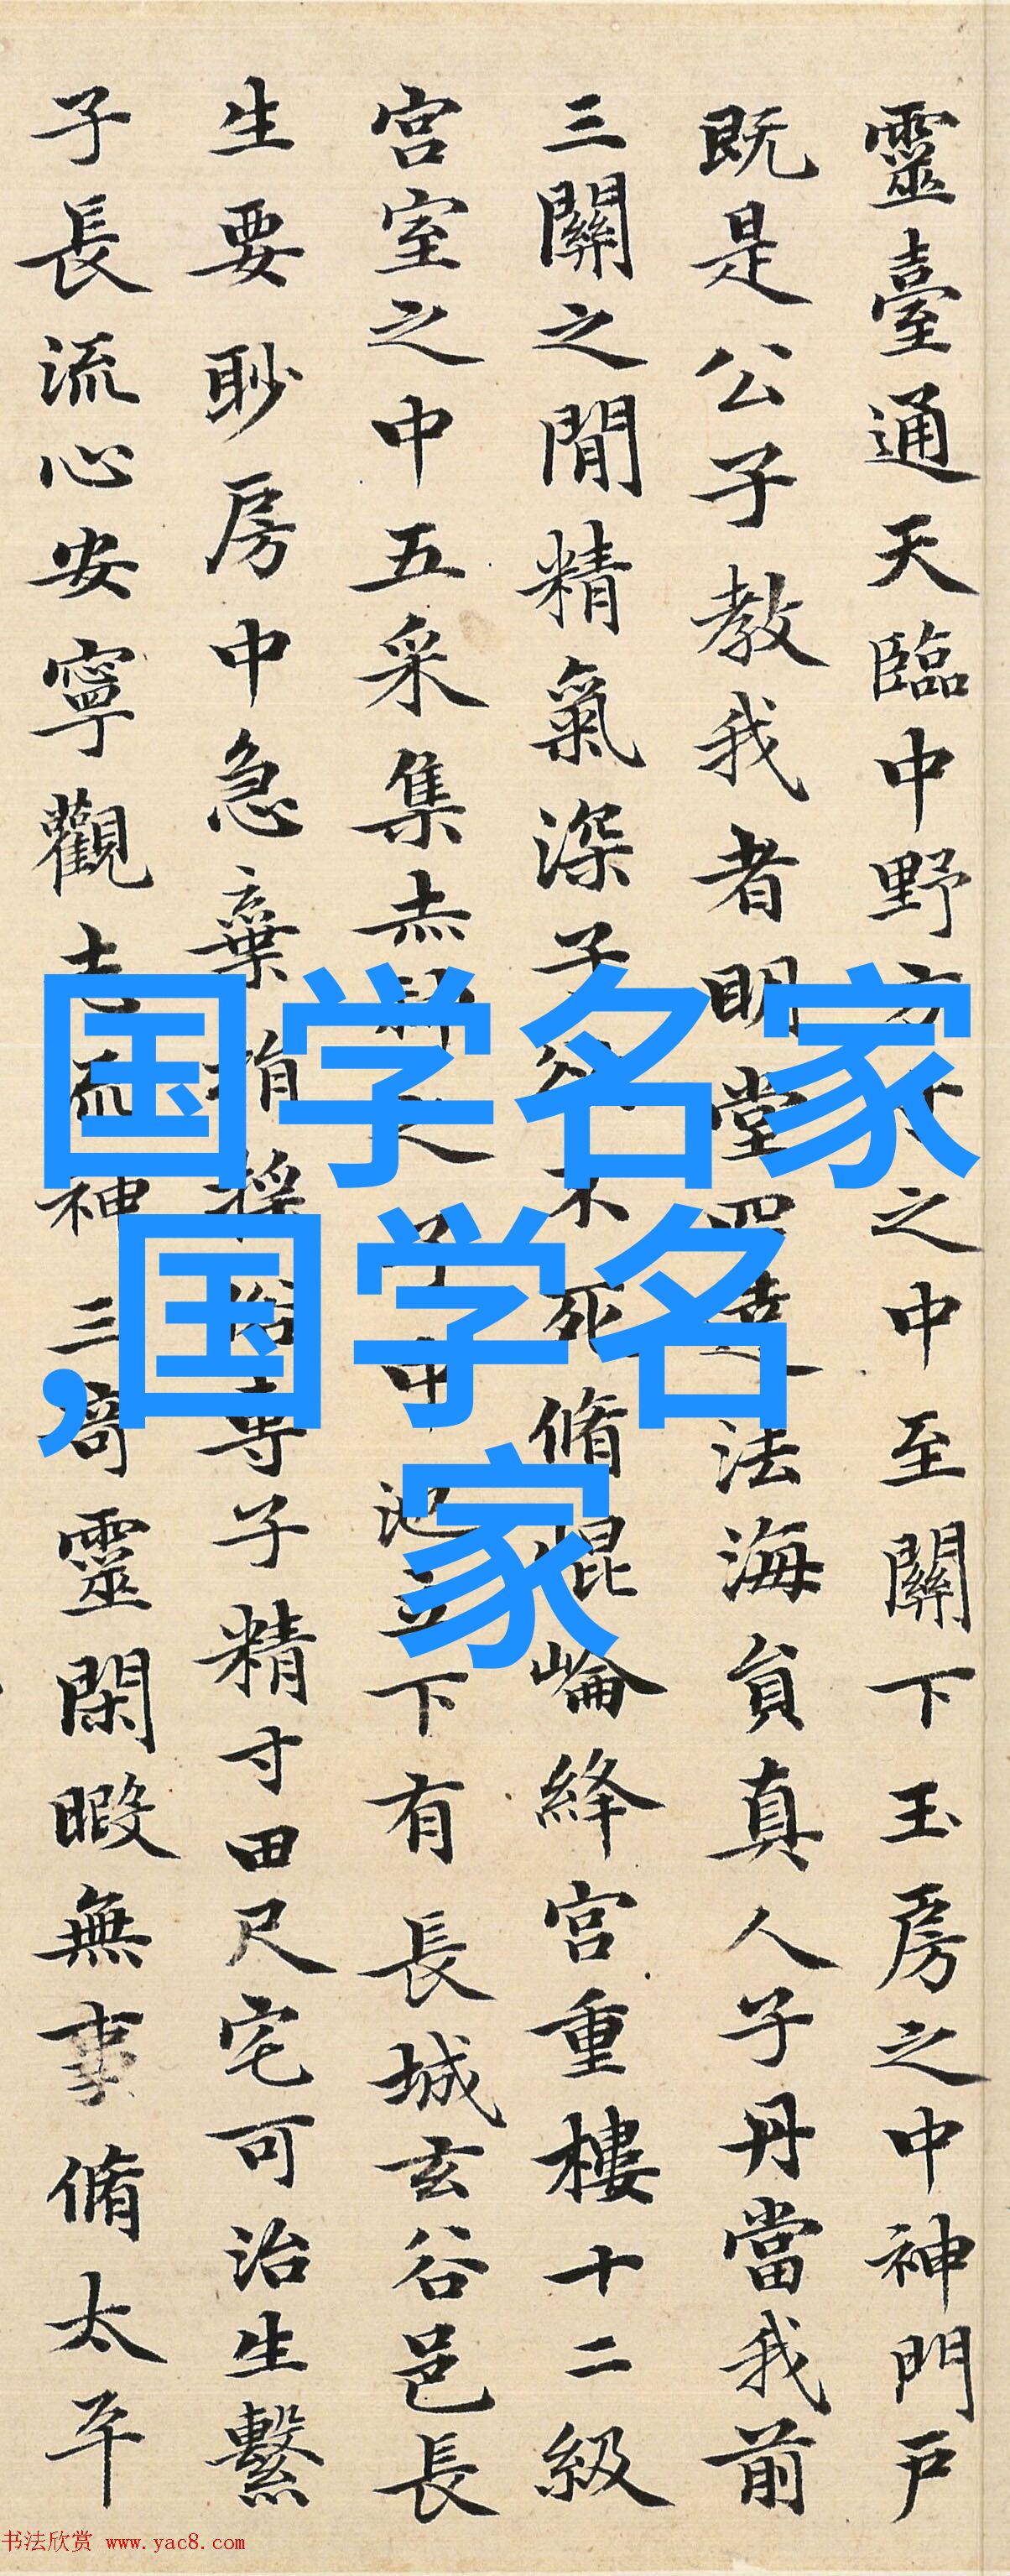 靈臺通天臨中野方寸之中至關下玉房之中神門戶
既是公子教我者明堂四達法海員真人子丹當我前
三關之間精氣深子欲不死脩崐崘絳宮重樓十二級
宮室之中五采集赤神之子中池立下有長城玄谷邑長
生要眇房中急棄捐搖俗專子精寸田尺宅可治生繫
子長流心安寧觀志流神三奇靈閑暇無事脩太平
国学名家
,国学名
家
书法欣赏 www.yac8.com